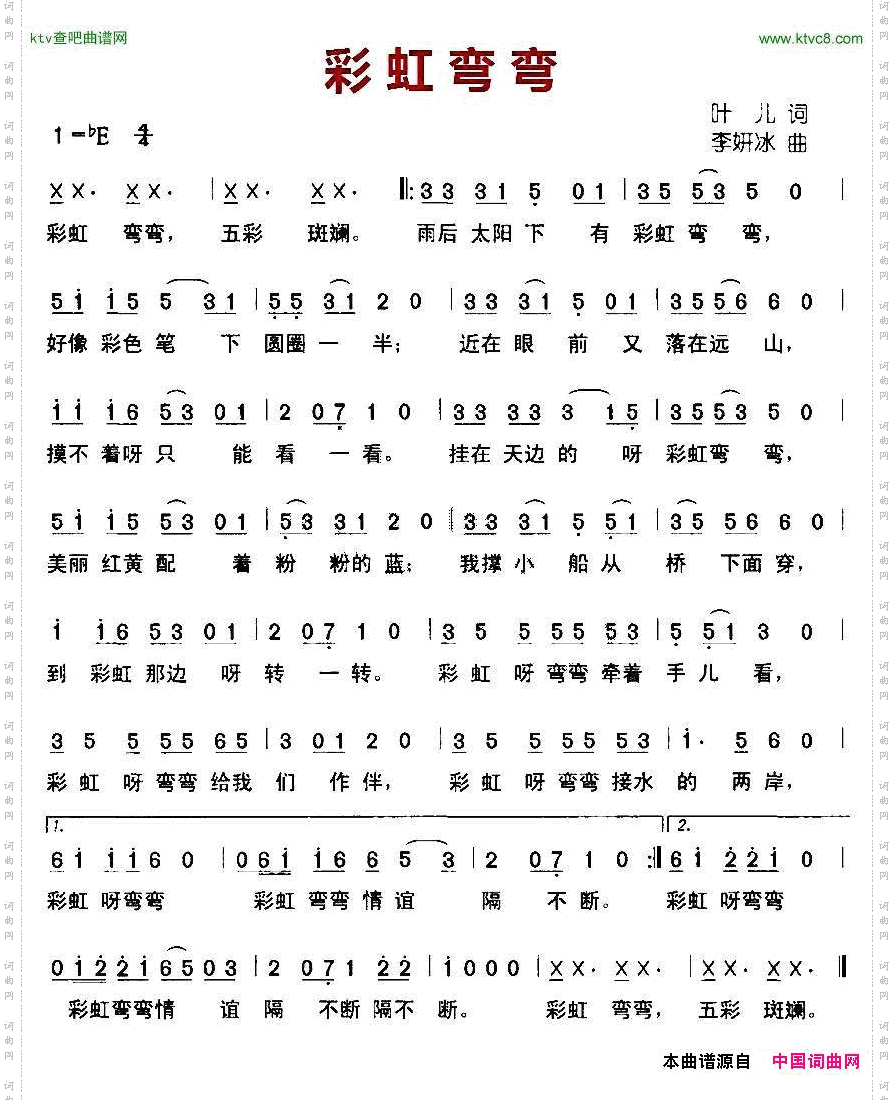 ktv查吧曲谱网 www.ktvc8.com
彩虹弯弯
叶儿 词
1=♭E 4/4 李妍冰 曲
X X· X X· | X X· X X· ‖: 3 3 3 1 5 0 1 | 3 5 5 3 5 0 |
彩虹 弯弯， 五彩 斑斓。 雨后 太阳 下 有 彩虹 弯 弯，
5 1 1 5 5 3 1 | 5 5 3 1 2 0 | 3 3 3 1 5 0 1 | 3 5 5 6 6 0 |
好像 彩色 笔 下 圆圈 一 半； 近在 眼 前 又 落在远 山，
1 1 1 6 5 3 0 1 | 2 0 7 1 0 | 3 3 3 3 3 1 5 | 3 5 5 3 5 0 |
摸不 着呀 只 能 看 一 看。 挂在 天边 的 呀 彩虹弯 弯，
5 1 1 5 5 3 0 1 | 5 3 3 1 2 0 | 3 3 3 1 5 5 1 | 3 5 5 6 6 0 |
美丽 红黄 配 着 粉 粉的 蓝； 我撑 小 船 从 桥 下面 穿，
1 1 6 5 3 0 1 | 2 0 7 1 0 | 3 5 5 5 5 5 3 | 5 5 1 3 0 |
到 彩虹 那边 呀 转 一 转。 彩 虹 呀 弯弯 牵着 手 儿 看，
3 5 5 5 5 6 5 | 3 0 1 2 0 | 3 5 5 5 5 5 3 | 1· 5 6 0 |
彩 虹 呀 弯弯 给我 们 作 伴， 彩 虹 呀 弯弯 接水 的 两 岸，
1. 2.
6 1 1 1 6 0 | 0 6 1 1 6 6 5 3 | 2 0 7 1 0 :‖ 6 1 2 2 1 0 |
彩虹 呀弯弯 彩虹 弯弯 情 谊 隔 不 断。 彩虹 呀弯弯
0 1 2 2 1 6 5 0 3 | 2 0 7 1 2 2 | 1 0 0 0 | X X· X X· | X X· X X· ‖
彩虹弯弯情 谊 隔 不断 隔不 断。 彩虹 弯弯， 五彩 斑斓。
本曲谱源自 中国词曲网